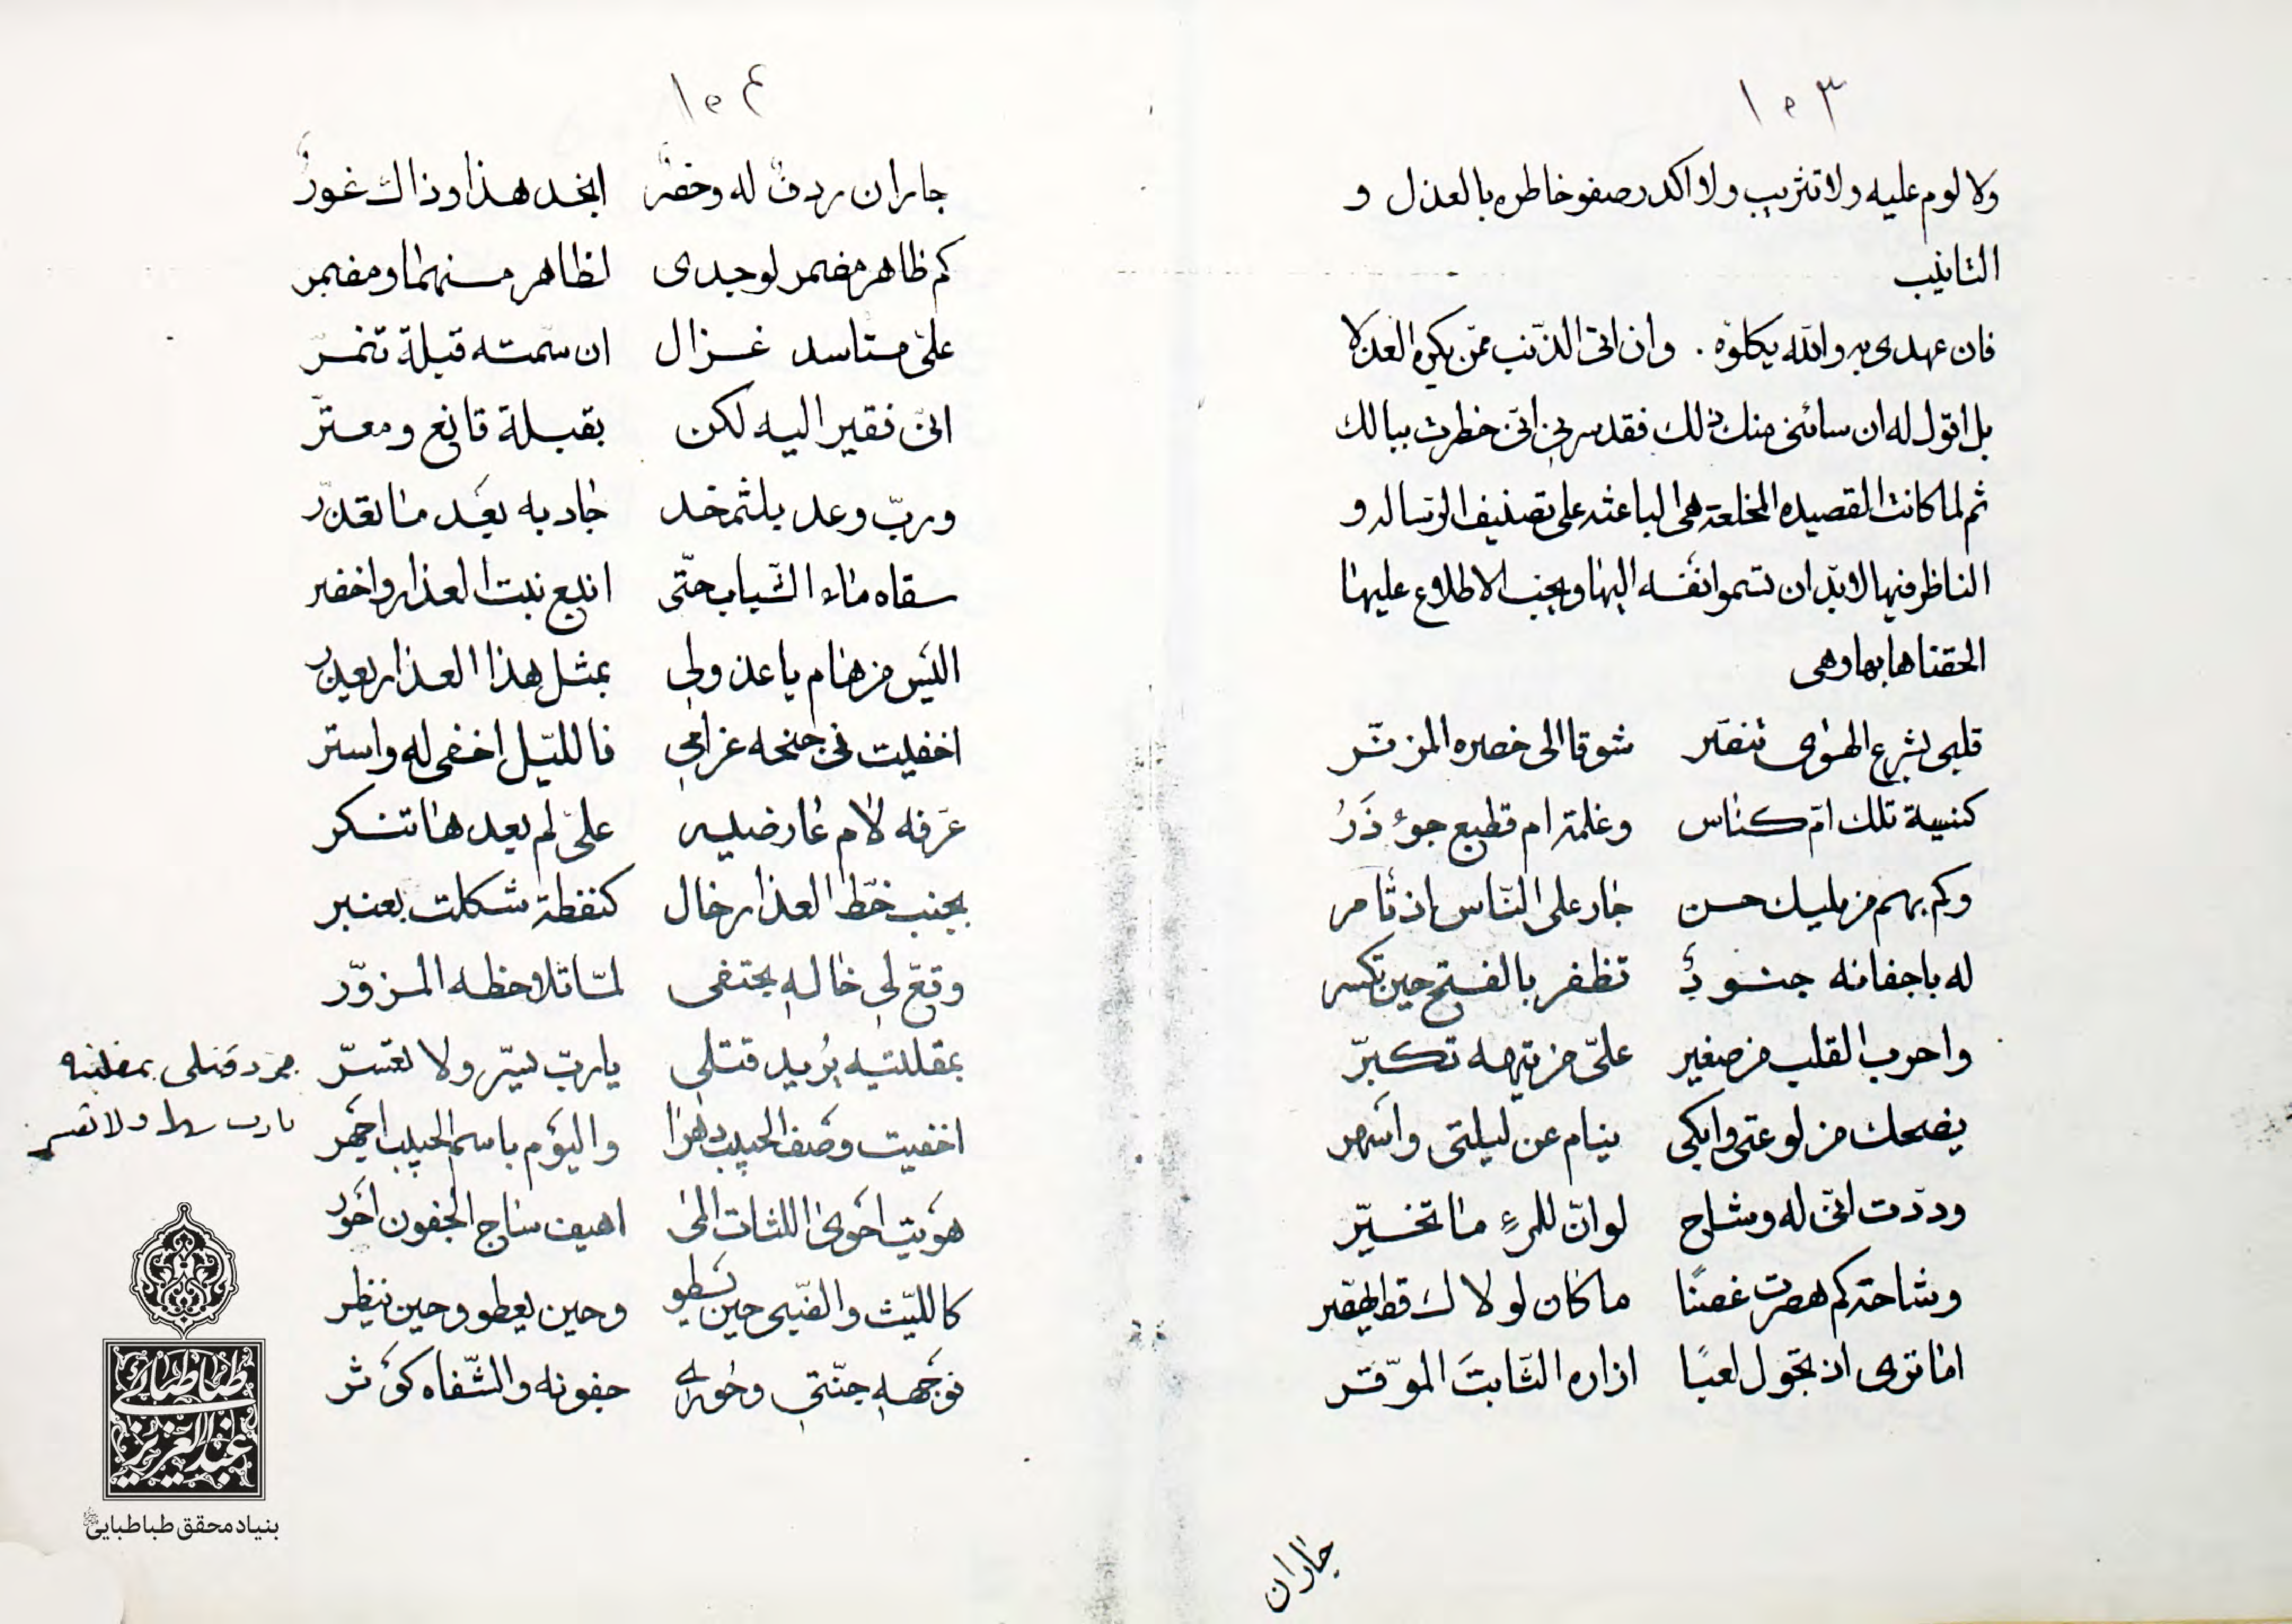 ١٠٣
ولا لوم عليه ولا تثريب ولا اكدر صفو خاطره بالعذل و
التانيب
فان عهدى به والله يكلؤه . وان اتى الذنب ممن يكره العذلا
بل اقول له ان سائنى منك ذلك فقد سرنى انى خطرت ببالك
ثم لما كانت القصيده المخلعة هى الباعثه على تصنيف الرساله و
الناظر فيها لابد ان تسموا نفسه اليها ويجب الاطلاع عليها
الحقناها بها وهى
قلبى بشرع الهوى تنصر شوقا الى خصره المزنر
كنيسة تلك ام كناس وغلمة ام قطيع جوءذر
وكم بهم من مليك حسن جار على الناس اذ تامر
له باجفانه جنود تظفر بالفتح حين تكسر
واحرب القلب من صغير علىّ من تيهه تكبّر
يضحك من لوعتى وابكى ينام عن ليلتى واسهر
وددت انى له وشاح لو انّ للمرء ما تخيّر
وشاحه كم هصرت غصنًا ما كان لولاك قط يهصر
اما ترى اذ تجول لعبًا ازاره الثابت الموقّر
جاران
١٠٤
جاران ردف له وخصر انجد هذا وذاك غور
كم ظاهر مضمر لوجدى لظاهر منهما ومضمر
علىّ مستاسد غزال ان سمته قبلة تنمّر
انى فقير اليه لكن بقبلة قانع ومعترّ
وربّ وعد بلثم خد جاد به بعد ما تعذّر
سقاه ماء الشباب حتّى اينع نبت العذار واخضر
اليس من هام يا عذولى بمثل هذا العذار يعذر
اخفيت فى جنحه غرامى فالليل اخفى له واستر
عرفه لام عارضيه علىّ لم بعدها تنكر
بجنب خطّ العذار خال كنقطة شكلت بعنبر
وقّع لى خاله بحتفى لمّا تلاحظه المزوّر
بمقلتيه يريد قتلى يا ربّ يسّر ولا تعسّر
اخفيت وصف الحبيب دهرا واليوم باسم الحبيب اجهر
هويت احوى اللثات المى اهيف ساج الجفون احور
كالليث والظبى حين يسطو وحين يعطو وحين ينظر
فوجهه جنّتى وحورى جفونه والشّفاه كوثر
مجرد قتلى بمقلتيه
يا رب سهل ولا تعسر
طباطبائى
عبدالعزيز
بنیاد محقق طباطبایی